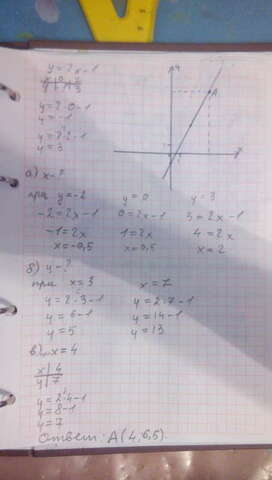 y=2x-1
x | 0 | 2
y | -1 | 3
y=2·0-1
y=-1
y=2·2-1
y=3
y
A
x
а) x-?
при y=-2 y=0 y=3
-2=2x-1 0=2x-1 3=2x-1
-1=2x 1=2x 4=2x
x=-0,5 x=0,5 x=2
б) y-?
при x=3 x=7
y=2·3-1 y=2·7-1
y=6-1 y=14-1
y=5 y=13
в) x=4
x | 4
y | 7
y=2·4-1
y=8-1
y=7
Ответ: A(4;6,5).